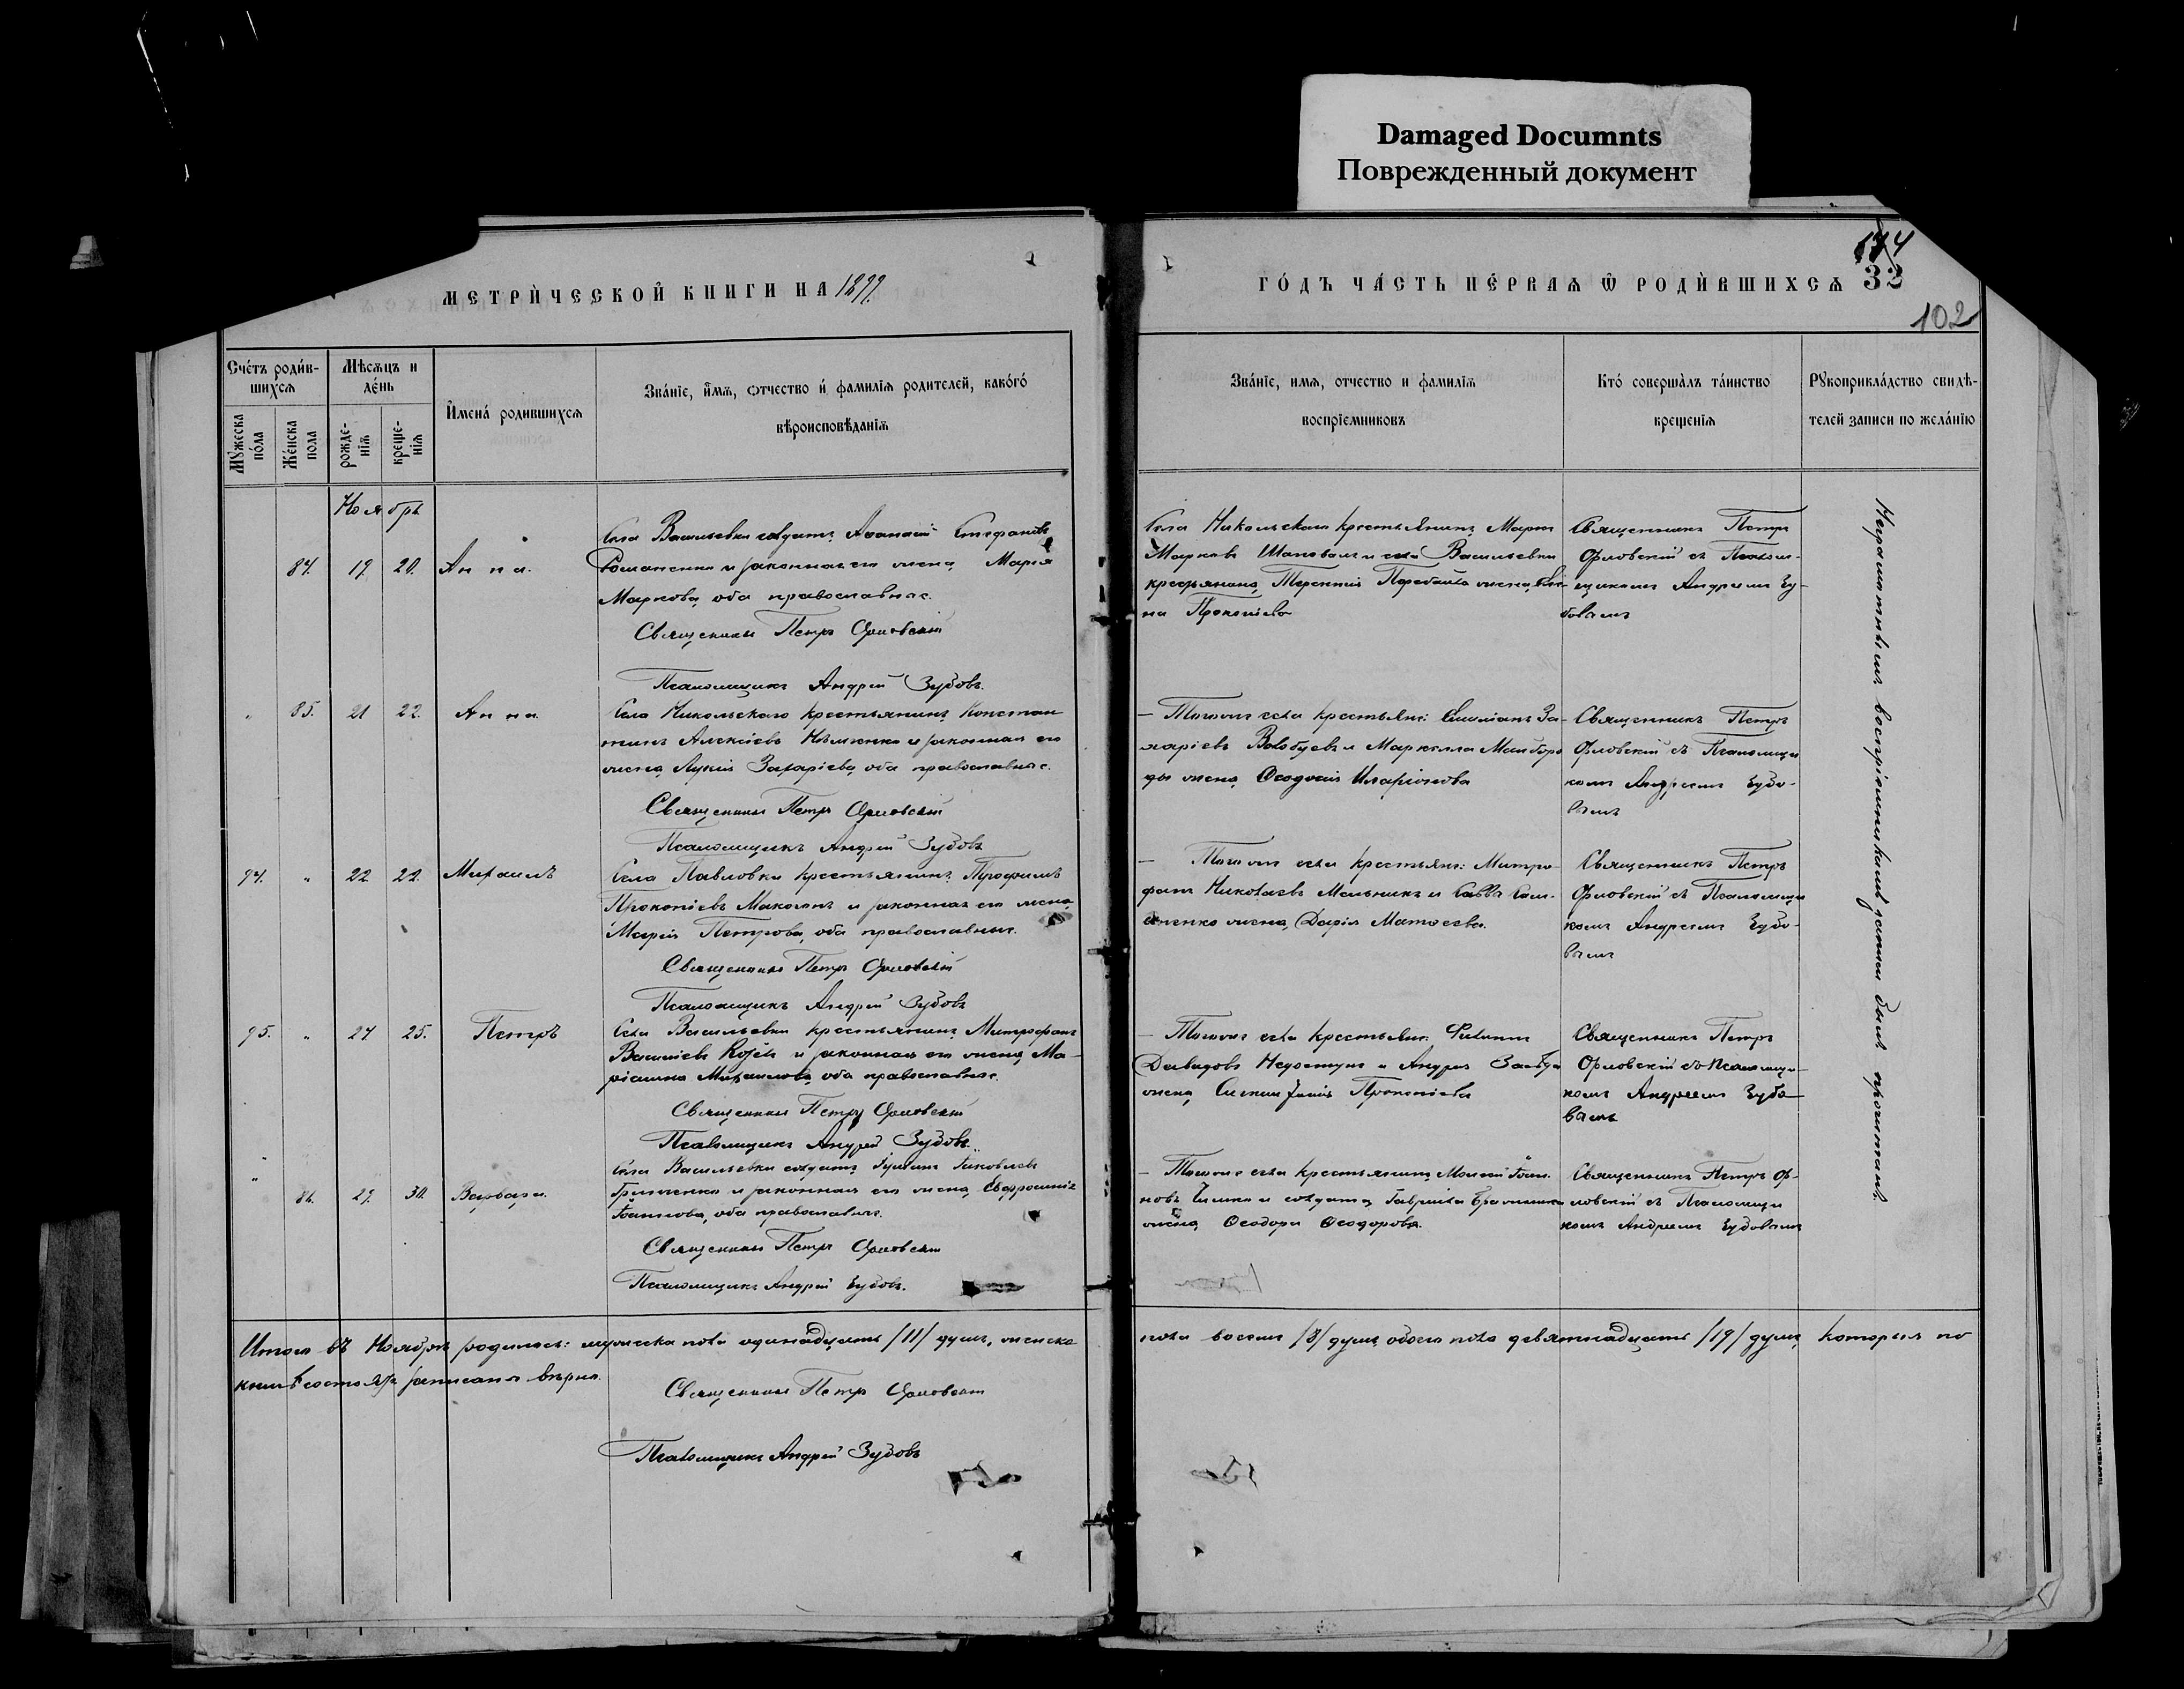 Damaged Documnts
Поврежденный документ
МЕТРИ́ЧЕСКОЙ КНИГИ НА 1899
ГО́ДЪ ЧА́СТЬ ПЕ́РВАѦ Ѡ҆ РОДИ́ВШИХСѦ 32
174
102
Сче́тъ роди́в-
шихсѧ
Мꙋ́жеска
по́ла
Же́нска
пола
Мѣсѧцъ и
де́нь
рожде-
нїѧ
креще-
нїѧ
И҆мена́ родившихсѧ
Зва́нїе, и҆́мѧ, ѻтчество и҆ фамилїѧ родителей, како́гѡ́
вѣроисповѣ́данїѧ
Зва́нїе, имѧ, отчество и фамилїѧ
воспрїемниковъ
Кто́ совершалъ та́инство
крещенїѧ
Рꙋкоприкла́дство свидѣ-
телей записи по жела́нїю
Ноябрь
84. 19. 20. Анна.
Села Васильевки солдатъ Аѳанасій Стефановъ
Романенко и законная его жена Марія
Маркова, оба православные.
Священникъ Петръ Орловскій
Псаломщикъ Андрей Зубовъ.
Села Никольскаго крестьянинъ Марко
Марковъ Шаповалъ и села Васильевки
крестьянина Терентія жена,
на Прокопіева
Священникъ Петръ
Орловскій съ Псалом-
щикомъ Андреемъ Зу-
бовымъ
" 85. 21 22. Анна.
Села Никольскаго крестьянинъ Констан
тинъ Алексіевъ и законная его
жена Лукія Захаріева, оба православные.
Священникъ Петръ Орловскій
Псаломщикъ Андрей Зубовъ
— Того же села крестьян: За-
харіевъ и
ды жена Ѳеодосія Иларіонова
Священникъ Петръ
Орловскій съ Псаломщи
комъ Андреемъ Зубо-
вымъ
94. " 22. 22. Михаилъ
Села Павловки крестьянинъ Трофимъ
Прокопіевъ и законная его жена
Марія Петрова, оба православные.
Священникъ Петръ Орловскій
Псаломщикъ Андрей Зубовъ
— Того же села крестьян: Митро-
фанъ Николаевъ Мельникъ и Савва
жена, Дарія Матѳеева.
Священникъ Петръ
Орловскій съ Псаломщи
комъ Андреемъ Зубо-
вымъ
95. " 24 25. Петръ
Села Васильевки крестьянинъ Митрофанъ
Василіевъ и законная его жена Ма-
ріанна Михаилова, оба православные.
Священникъ Петръ Орловскій
Псаломщикъ Андрей Зубовъ.
— Того же села крестьян: Филиппъ
Давидовъ и Андрея
жена Прокопіева
Священникъ Петръ
Орловскій съ Псаломщи-
комъ Андреемъ Зубо-
вымъ
" 86. 29. 30. Варвара.
Села Васильевки солдатъ Іаковлевъ
и законная его жена Евфросинія
Іоаннова, оба православные.
Священникъ Петръ Орловскій
Псаломщикъ Андрей Зубовъ.
— Того же села крестьянинъ Моисей Іоан-
новъ и солдата Гавріила
жена Ѳеодора Ѳеодорова.
Священникъ Петръ Ор-
ловскій съ Псаломщи
комъ Андреемъ Зубовымъ
Неграмотнымъ воспріемникамъ записи были прочитаны.
Итого въ Ноябрѣ родилось: мужеска пола одинадцать /11/ душъ, женска
пола восемь /8/ душъ, обоего пола девятнадцать /19/ душъ, которыя по
книгѣ записаны вѣрно.
Священникъ Петръ Орловскій
Псаломщикъ Андрей Зубовъ